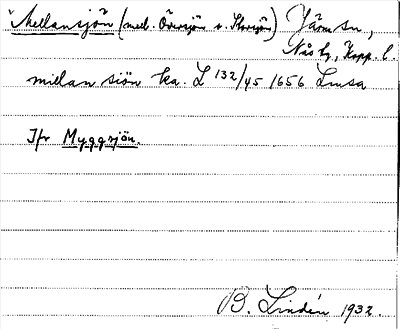 Mellansjön (mell. Öresjön o. Storsjön) Järna sn,
Nås hg, Kopp. l.
millan siön ka. L 132/45 1656 Linsa
Jfr Myggsjön.
B. Lindén 1932.